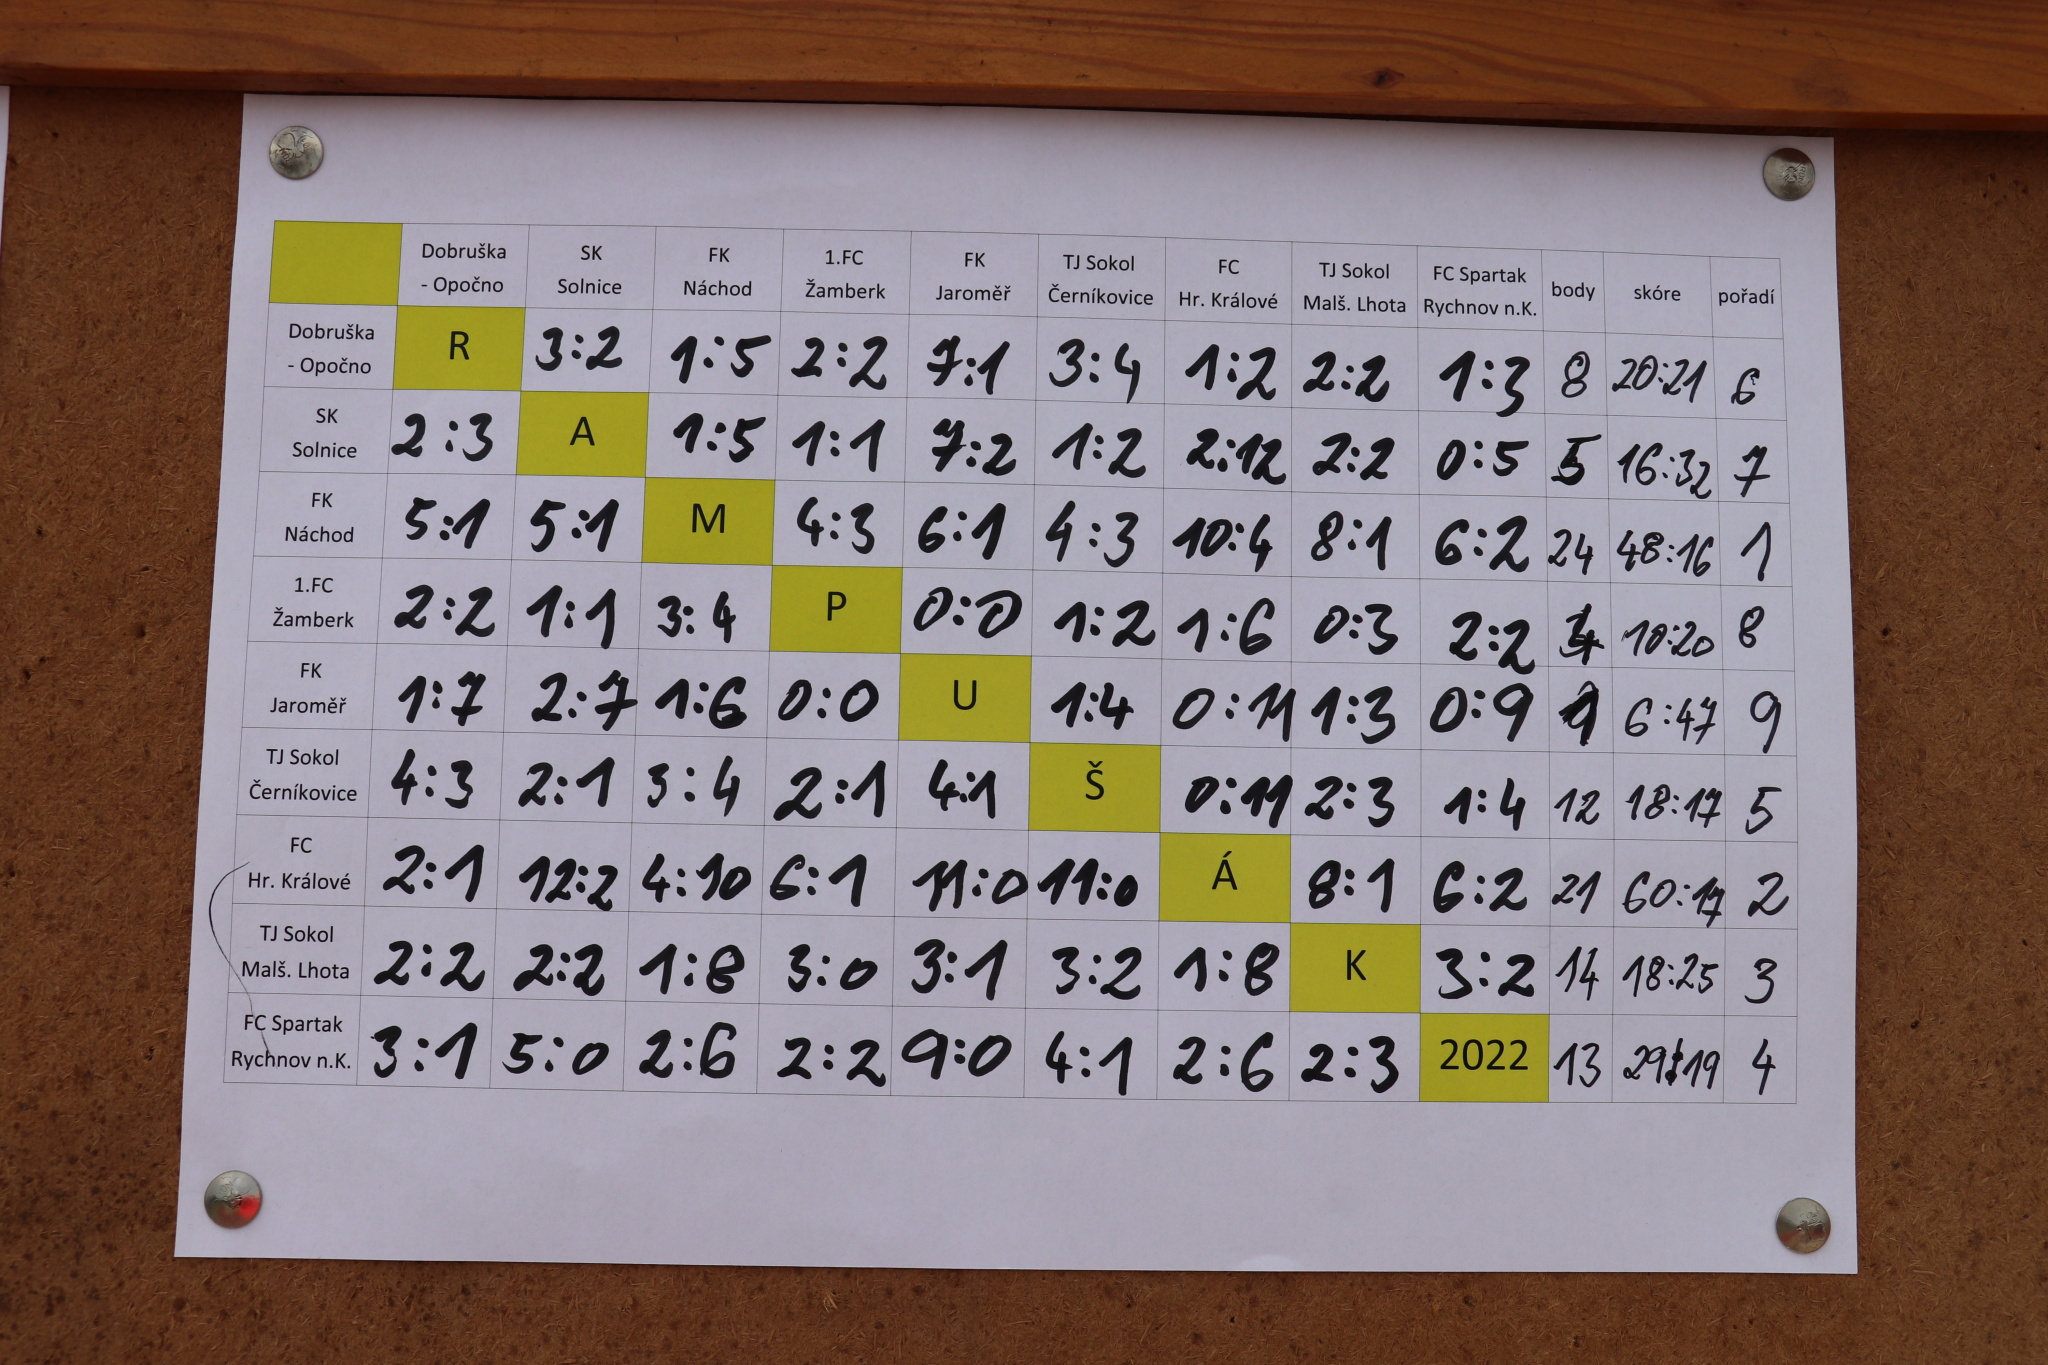 Dobruška - Opočno SK Solnice FK Náchod 1.FC Žamberk FK Jaroměř TJ Sokol Černíkovice FC Hr. Králové TJ Sokol Malš. Lhota FC Spartak Rychnov n.K. body skóre pořadí
Dobruška - Opočno R 3:2 1:5 2:2 7:1 3:4 1:2 2:2 1:3 8 20:21 6
SK Solnice 2:3 A 1:5 1:1 7:2 1:2 2:12 2:2 0:5 5 16:32 7
FK Náchod 5:1 5:1 M 4:3 6:1 4:3 10:4 8:1 6:2 24 48:16 1
1.FC Žamberk 2:2 1:1 3:4 P 0:0 1:2 1:6 0:3 2:2 4 10:20 8
FK Jaroměř 1:7 2:7 1:6 0:0 U 1:4 0:11 1:3 0:9 1 6:47 9
TJ Sokol Černíkovice 4:3 2:1 3:4 2:1 4:1 Š 0:11 2:3 1:4 12 18:17 5
FC Hr. Králové 2:1 12:2 4:10 6:1 11:0 11:0 Á 8:1 6:2 21 60:17 2
TJ Sokol Malš. Lhota 2:2 2:2 1:8 3:0 3:1 3:2 1:8 K 3:2 14 18:25 3
FC Spartak Rychnov n.K. 3:1 5:0 2:6 2:2 9:0 4:1 2:6 2:3 2022 13 29:19 4